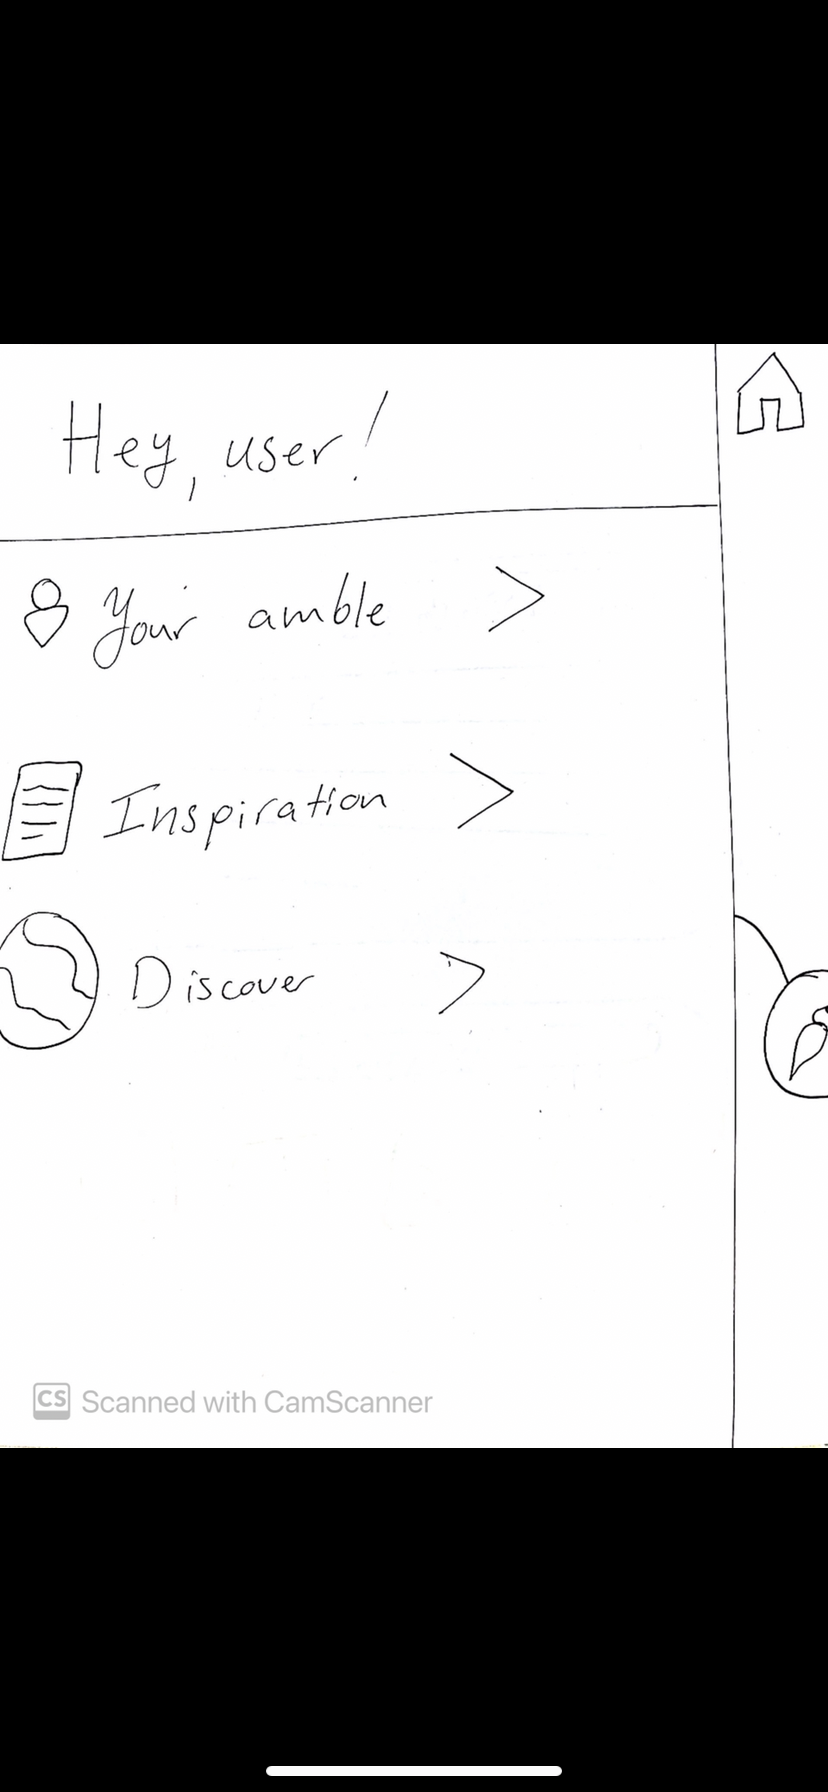 Hey, user!
Your amble >
Inspiration >
Discover >
CS Scanned with CamScanner